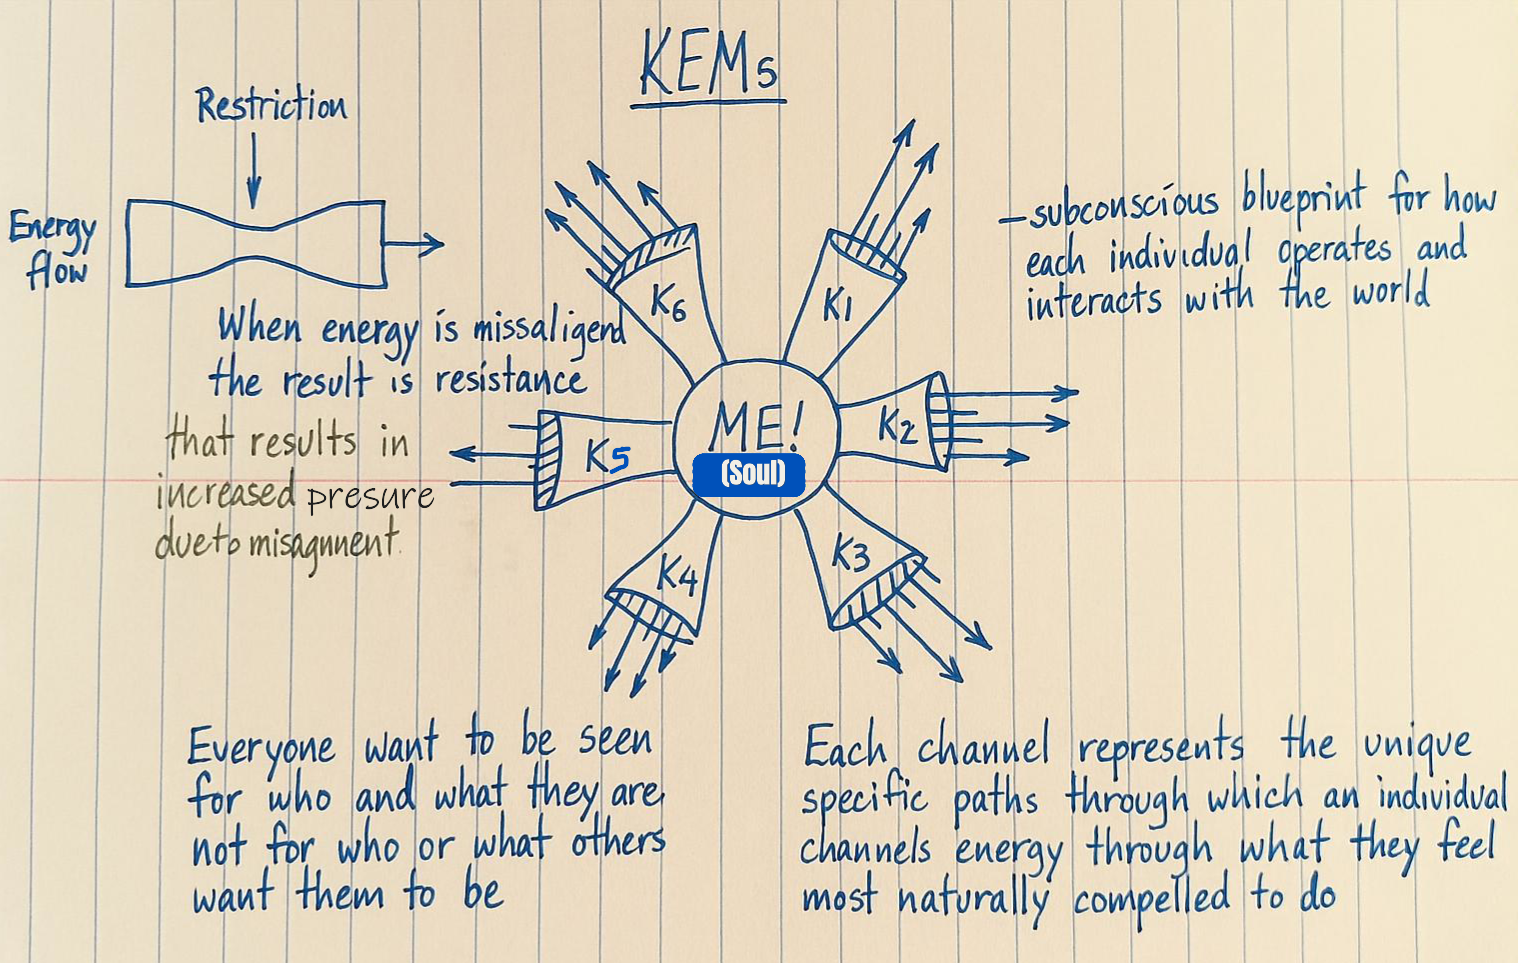 KEMs
Restriction
Energy
flow
When energy is missaligend
the result is resistance
that results in
increased presure
dueto misagnment.
—subconscious blueprint for how
each individual operates and
interacts with the world
K6
K1
K5
K2
ME!
(Soul)
K4
K3
Everyone want to be seen
for who and what they are,
not for who or what others
want them to be
Each channel represents the unique
specific paths through which an individual
channels energy through what they feel
most naturally compelled to do